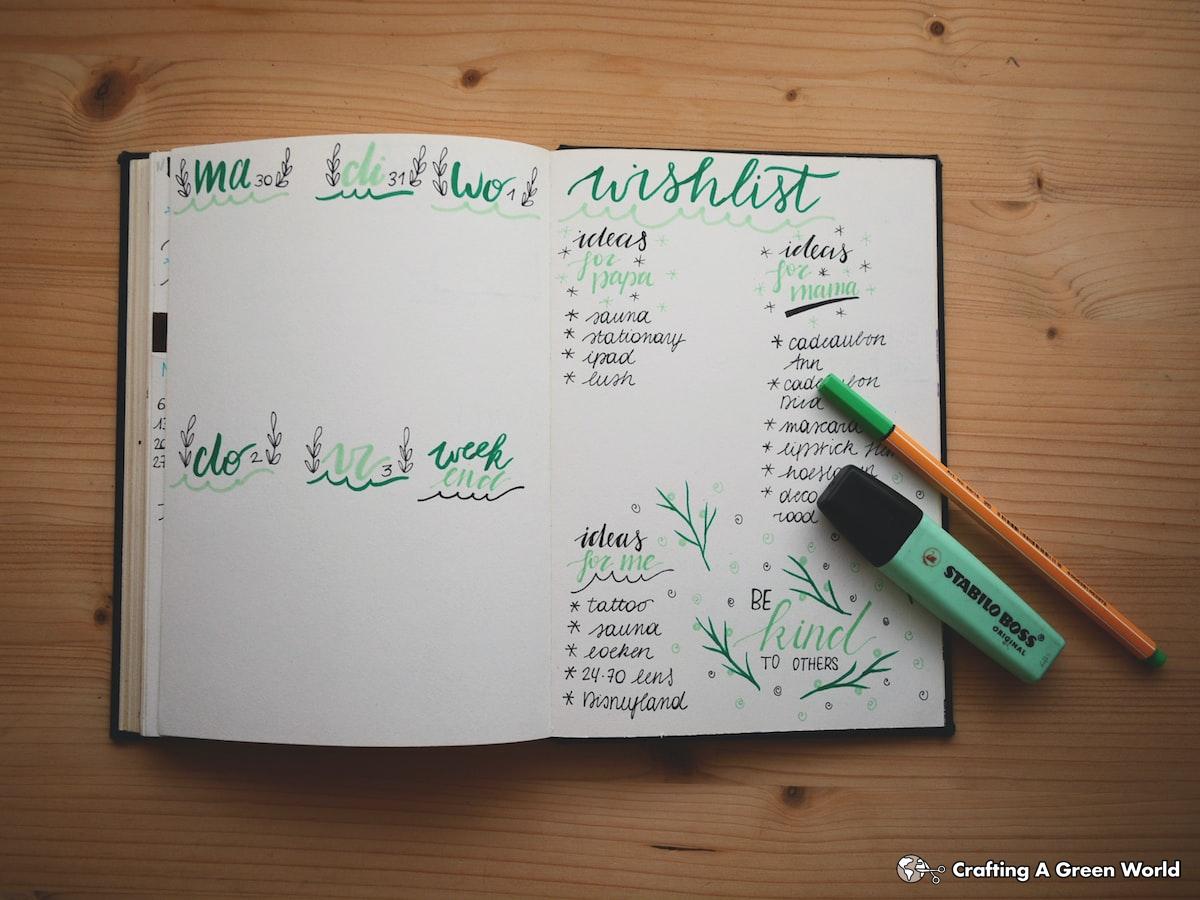 ma 30 di 31 wo 1
do 2 vr 3 week
end
wishlist
ideas
for
papa
* sauna
* stationary
* ipad
* lush
ideas
for
mama
* cadeaubon
Ann
* mascara
* lipstick
* deco
rood
ideas
for me
* tattoo
* sauna
* boeken
* 24-70 lens
* Disneyland
BE
kind
TO OTHERS
STABILO BOSS
ORIGINAL
Crafting A Green World